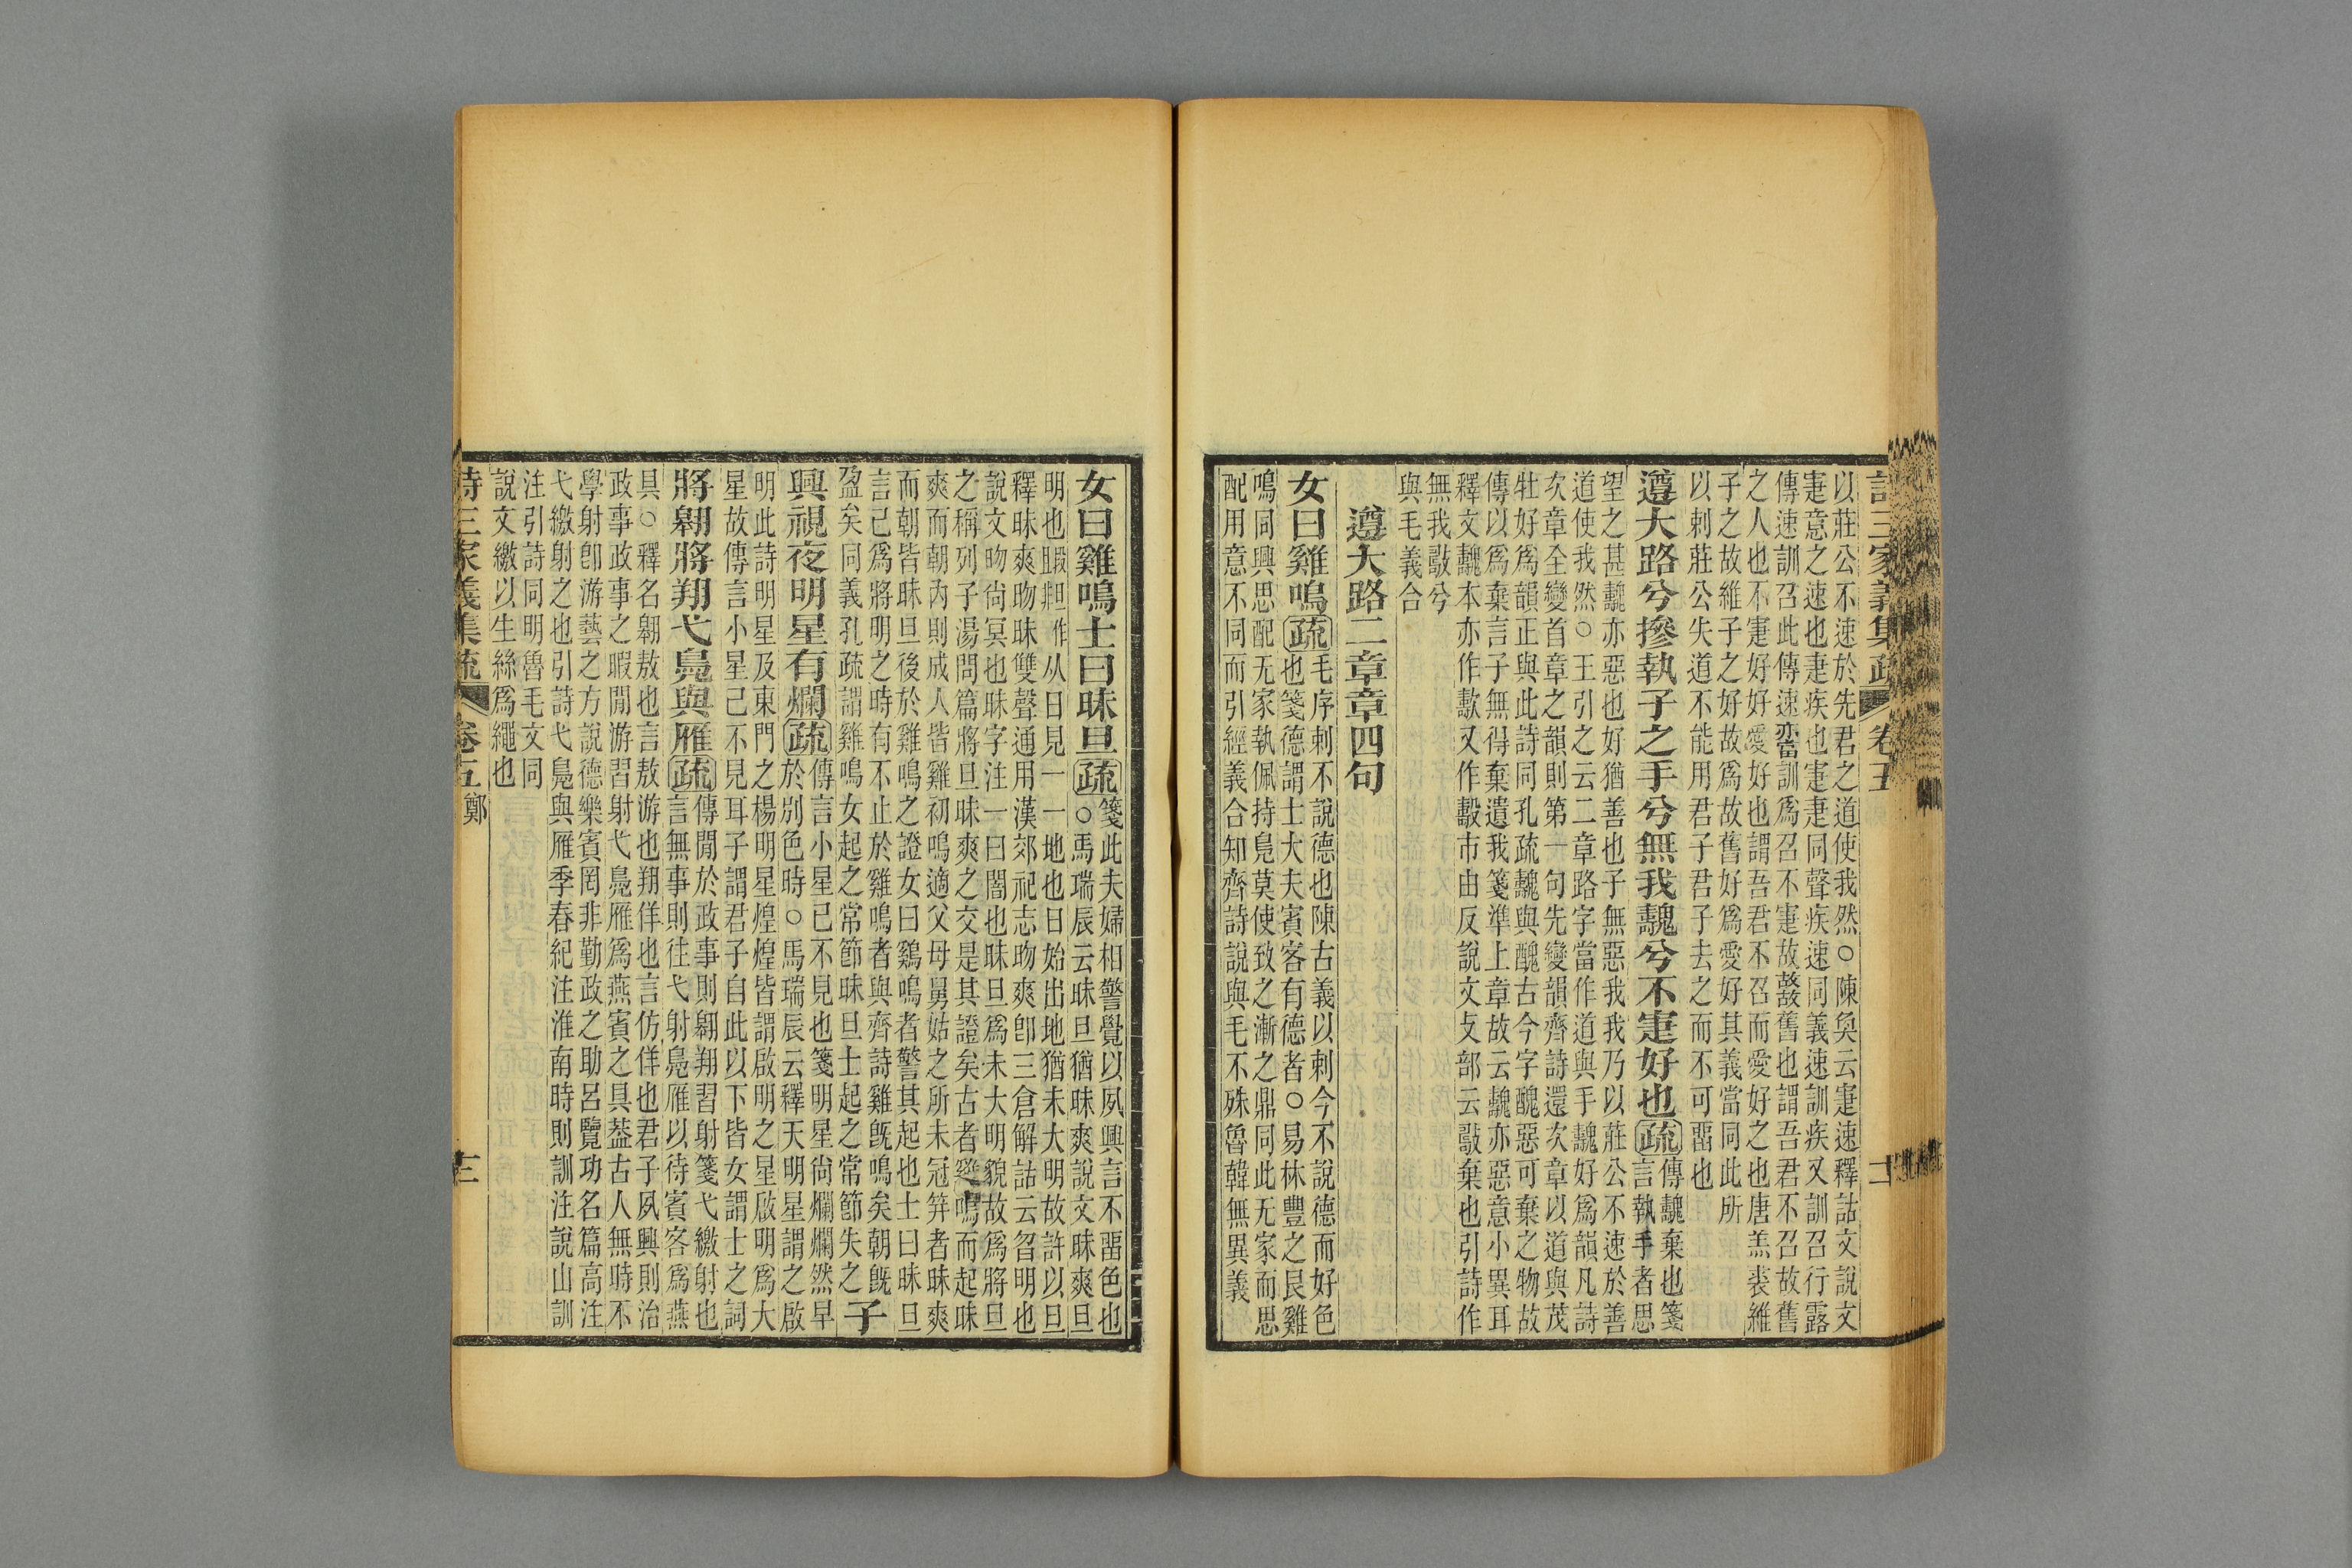 詩三家義集疏 卷五
以莊公不速於先君之道使我然○陳奐云寁速釋詁文說文
寁意之速也疌疾也寁疌同聲疾速同義速訓疾又訓召行露
傳速訓召此傳速亦當訓爲召不寁故舊也謂吾君不召故舊
之人也不寁好好愛好也謂吾君不召而愛好之也唐羔裘維
子之故維子之好故爲故舊好爲愛好其義當同此所
以刺莊公失道不能用君子君子去之而不可畱也
遵大路兮摻執子之手兮無我魗兮不寁好也疏
傳魗棄也箋
言執手者思
望之甚魗亦惡也好猶善也子無惡我我乃以莊公不速於善
道使我然○王引之云二章路字當作道與手魗好爲韻凡詩
次章全變首章之韻則第一句先變韻齊詩還次章以道與茂
牡好爲韻正與此詩同孔疏魗與醜古今字醜惡可棄之物故
傳以爲棄言子無得棄遺我箋準上章故云魗亦惡意小異耳
釋文魗本亦作㪑又作𣀳市由反說文攴部云㪑棄也引詩作
無我㪑兮
與毛義合
遵大路二章章四句
女曰雞鳴疏
毛序刺不說德也陳古義以刺今不說德而好色
也箋德謂士大夫賓客有德者○易林豐之艮雞
鳴同興思配无家執佩持鳧莫使致之漸之鼎同此无家而思
配用意不同而引經義合知齊詩說與毛不殊魯韓無異義
女曰雞鳴士曰昧旦疏
箋此夫婦相警覺以夙興言不畱色也
○馬瑞辰云昧旦猶昧爽說文昧爽旦
明也一地也日始出地猶未大明故許以旦
釋昧爽吻昧雙聲通用漢郊祀志吻爽卽三倉解詁云曶明也
說文吻尙冥也昧字注一曰闇也昧旦爲未大明貌故爲將旦
之稱列子湯問篇將旦昧爽之交是其證矣古者雞鳴而起昧
爽而朝內則成人皆雞初鳴適父母舅姑之所未冠笄者昧爽
而朝皆昧旦後於雞鳴之證女曰雞鳴者警其起也士曰昧旦
言己爲將明之時有不止於雞鳴者與齊詩雞旣鳴矣朝旣
盈矣同義孔疏謂雞鳴女起之常節昧旦士起之常節失之子
興視夜明星有爛疏
傳言小星已不見也箋明星尙爛爛然早
於別色時○馬瑞辰云釋天明星謂之啟
明此詩明星及東門之楊明星煌煌皆謂啟明之星啟明爲大
星故傳言小星已不見耳子謂君子自此以下皆女謂士之詞
將翱將翔弋鳧與雁疏
傳閒於政事則翱翔習射箋弋繳射也
言無事則往弋射鳧雁以待賓客爲燕
具○釋名翱敖也言敖游也翔佯也言仿佯也君子夙興則治
政事政事之暇閒游習射弋鳧雁爲燕賓之具葢古人無時不
學射卽游藝之方說德樂賓罔非勤政之助呂覽功名篇高注
弋繳射之也引詩弋鳧與雁季春紀注淮南時則訓注說山訓
注引詩同明魯毛文同
說文繳以生絲爲繩也
詩三家義集疏 卷五 鄭